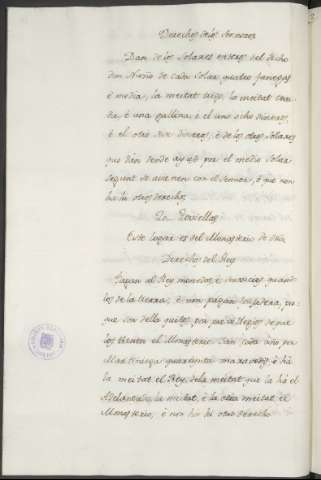 Derechos delos Señores
Dan de los Solares estos del dicho
don Nuño de cada Solar quatro fanegas
è media, la meitat trigo, la meitat ceva-
da, è una gallina, è el uno ocho dineros,
è el otro seis dineros, è de los otros Solares
que dan dende ayuso por el medio Solar
segunt se avienen con el Señor, è que non
ha hi otros derechos
Este logar es del Monesterio de
Derechos del Rey
Pagan al Rey monedas, è servicios quando
los de la tierra, è non pagan fonsadera, por
que son della quitos por privilegios de que
los tienen el Monesterio. Dan cada año por
Martiniega quarenta maravedis, è ha
la meitat el Rey, dela meitat que la ha el
Adelantado, la meitat, è la otra meitat el
Monesterio, è non ha hi otro derecho